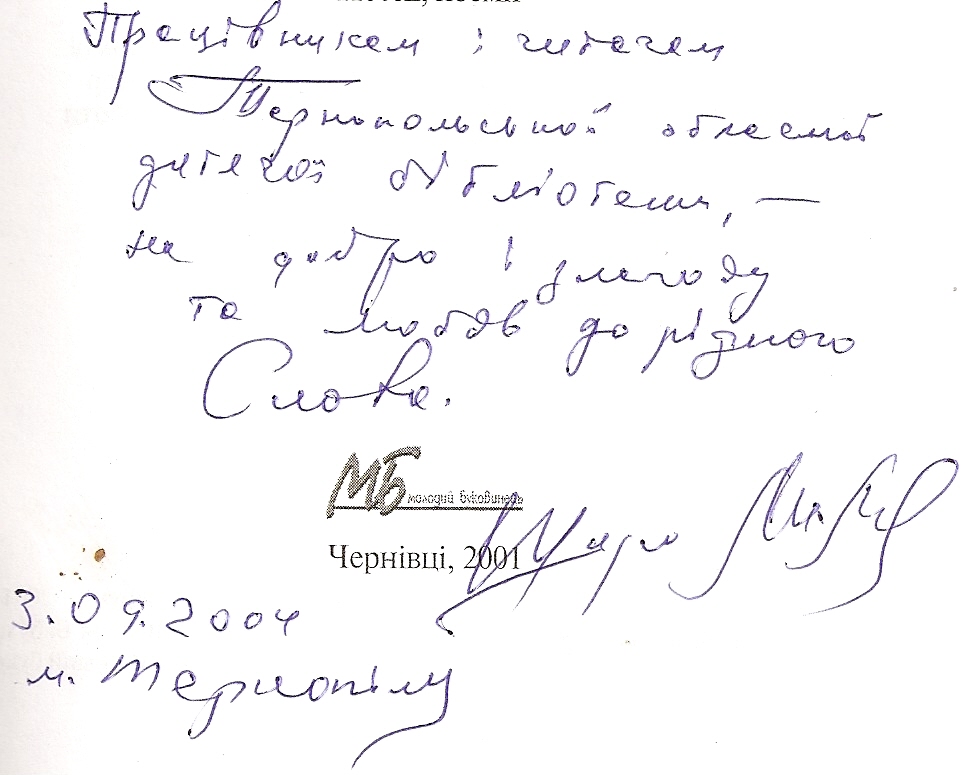 Працівникам і читачам
Тернопольської обласної
дитячої бібліотеки, —
на добро і злагоду
та любов до рідного
Слова.
МБ молодий буковинець
Чернівці, 2001
3.09.2004
м. Тернопіль